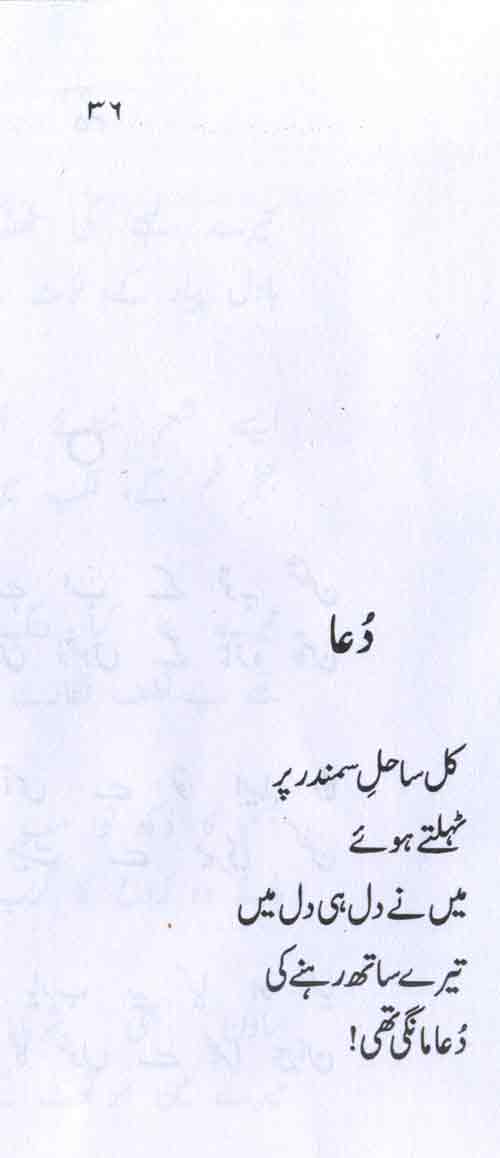 ۳۶
دُعا
کل ساحلِ سمندر پر
ٹہلتے ہوئے
میں نے دل ہی دل میں
تیرے ساتھ رہنے کی
دُعا مانگی تھی!